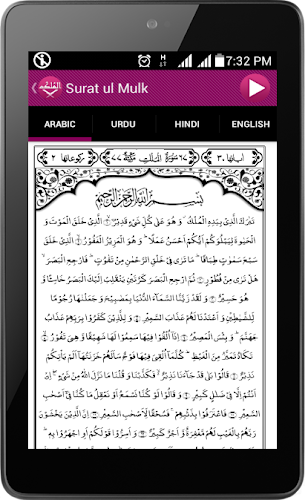 7:32 PM
Surat ul Mulk
ARABIC URDU HINDI ENGLISH
اٰیاتها ٣٠ ٦٧ سُوْرَةُ الْمُلْكِ مَكِّيَّةٌ ٧٧ رکوعاتها ٢
بِسْمِ اللّٰهِ الرَّحْمٰنِ الرَّحِيْمِ
تَبٰرَكَ الَّذِيْ بِيَدِهِ الْمُلْكُ ۫ وَ هُوَ عَلٰى كُلِّ شَيْءٍ قَدِيْرُ ۝ الَّذِيْ خَلَقَ الْمَوْتَ وَ
الْحَيٰوةَ لِيَبْلُوَكُمْ اَيُّكُمْ اَحْسَنُ عَمَلًا ؕ وَ هُوَ الْعَزِيْزُ الْغَفُوْرُ ۝ الَّذِيْ خَلَقَ
سَبْعَ سَمٰوٰتٍ طِبَاقًا ؕ مَا تَرٰى فِيْ خَلْقِ الرَّحْمٰنِ مِنْ تَفٰوُتٍ ؕ فَارْجِعِ الْبَصَرَ ۙ
هَلْ تَرٰى مِنْ فُطُوْرٍ ۝ ثُمَّ ارْجِعِ الْبَصَرَ كَرَّتَيْنِ يَنْقَلِبْ اِلَيْكَ الْبَصَرُ خَاسِئًا وَّ
هُوَ حَسِيْرٌ ۝ وَ لَقَدْ زَيَّنَّا السَّمَآءَ الدُّنْيَا بِمَصَابِيْحَ وَ جَعَلْنٰهَا رُجُوْمًا
لِّلشَّيٰطِيْنِ وَ اَعْتَدْنَا لَهُمْ عَذَابَ السَّعِيْرِ ۝ وَ لِلَّذِيْنَ كَفَرُوْا بِرَبِّهِمْ عَذَابُ
جَهَنَّمَ ؕ وَ بِئْسَ الْمَصِيْرُ ۝ اِذَآ اُلْقُوْا فِيْهَا سَمِعُوْا لَهَا شَهِيْقًا وَّ هِيَ تَفُوْرُ ۝
تَكَادُ تَمَيَّزُ مِنَ الْغَيْظِ ؕ كُلَّمَآ اُلْقِيَ فِيْهَا فَوْجٌ سَاَلَهُمْ خَزَنَتُهَآ اَلَمْ يَاْتِكُمْ نَذِيْرٌ ۝
قَالُوْا بَلٰى قَدْ جَآءَنَا نَذِيْرٌ ۙ فَكَذَّبْنَا وَ قُلْنَا مَا نَزَّلَ اللّٰهُ مِنْ شَيْءٍ ۚ اِنْ
اَنْتُمْ اِلَّا فِيْ ضَلٰلٍ كَبِيْرٍ ۝ وَ قَالُوْا لَوْ كُنَّا نَسْمَعُ اَوْ نَعْقِلُ مَا كُنَّا فِيْ اَصْحٰبِ
السَّعِيْرِ ۝ فَاعْتَرَفُوْا بِذَنْۢبِهِمْ ۚ فَسُحْقًا لِّاَصْحٰبِ السَّعِيْرِ ۝ اِنَّ الَّذِيْنَ يَخْشَوْنَ
رَبَّهُمْ بِالْغَيْبِ لَهُمْ مَّغْفِرَةٌ وَّ اَجْرٌ كَبِيْرٌ ۝ وَ اَسِرُّوْا قَوْلَكُمْ اَوِ اجْهَرُوْا بِهٖ ؕ